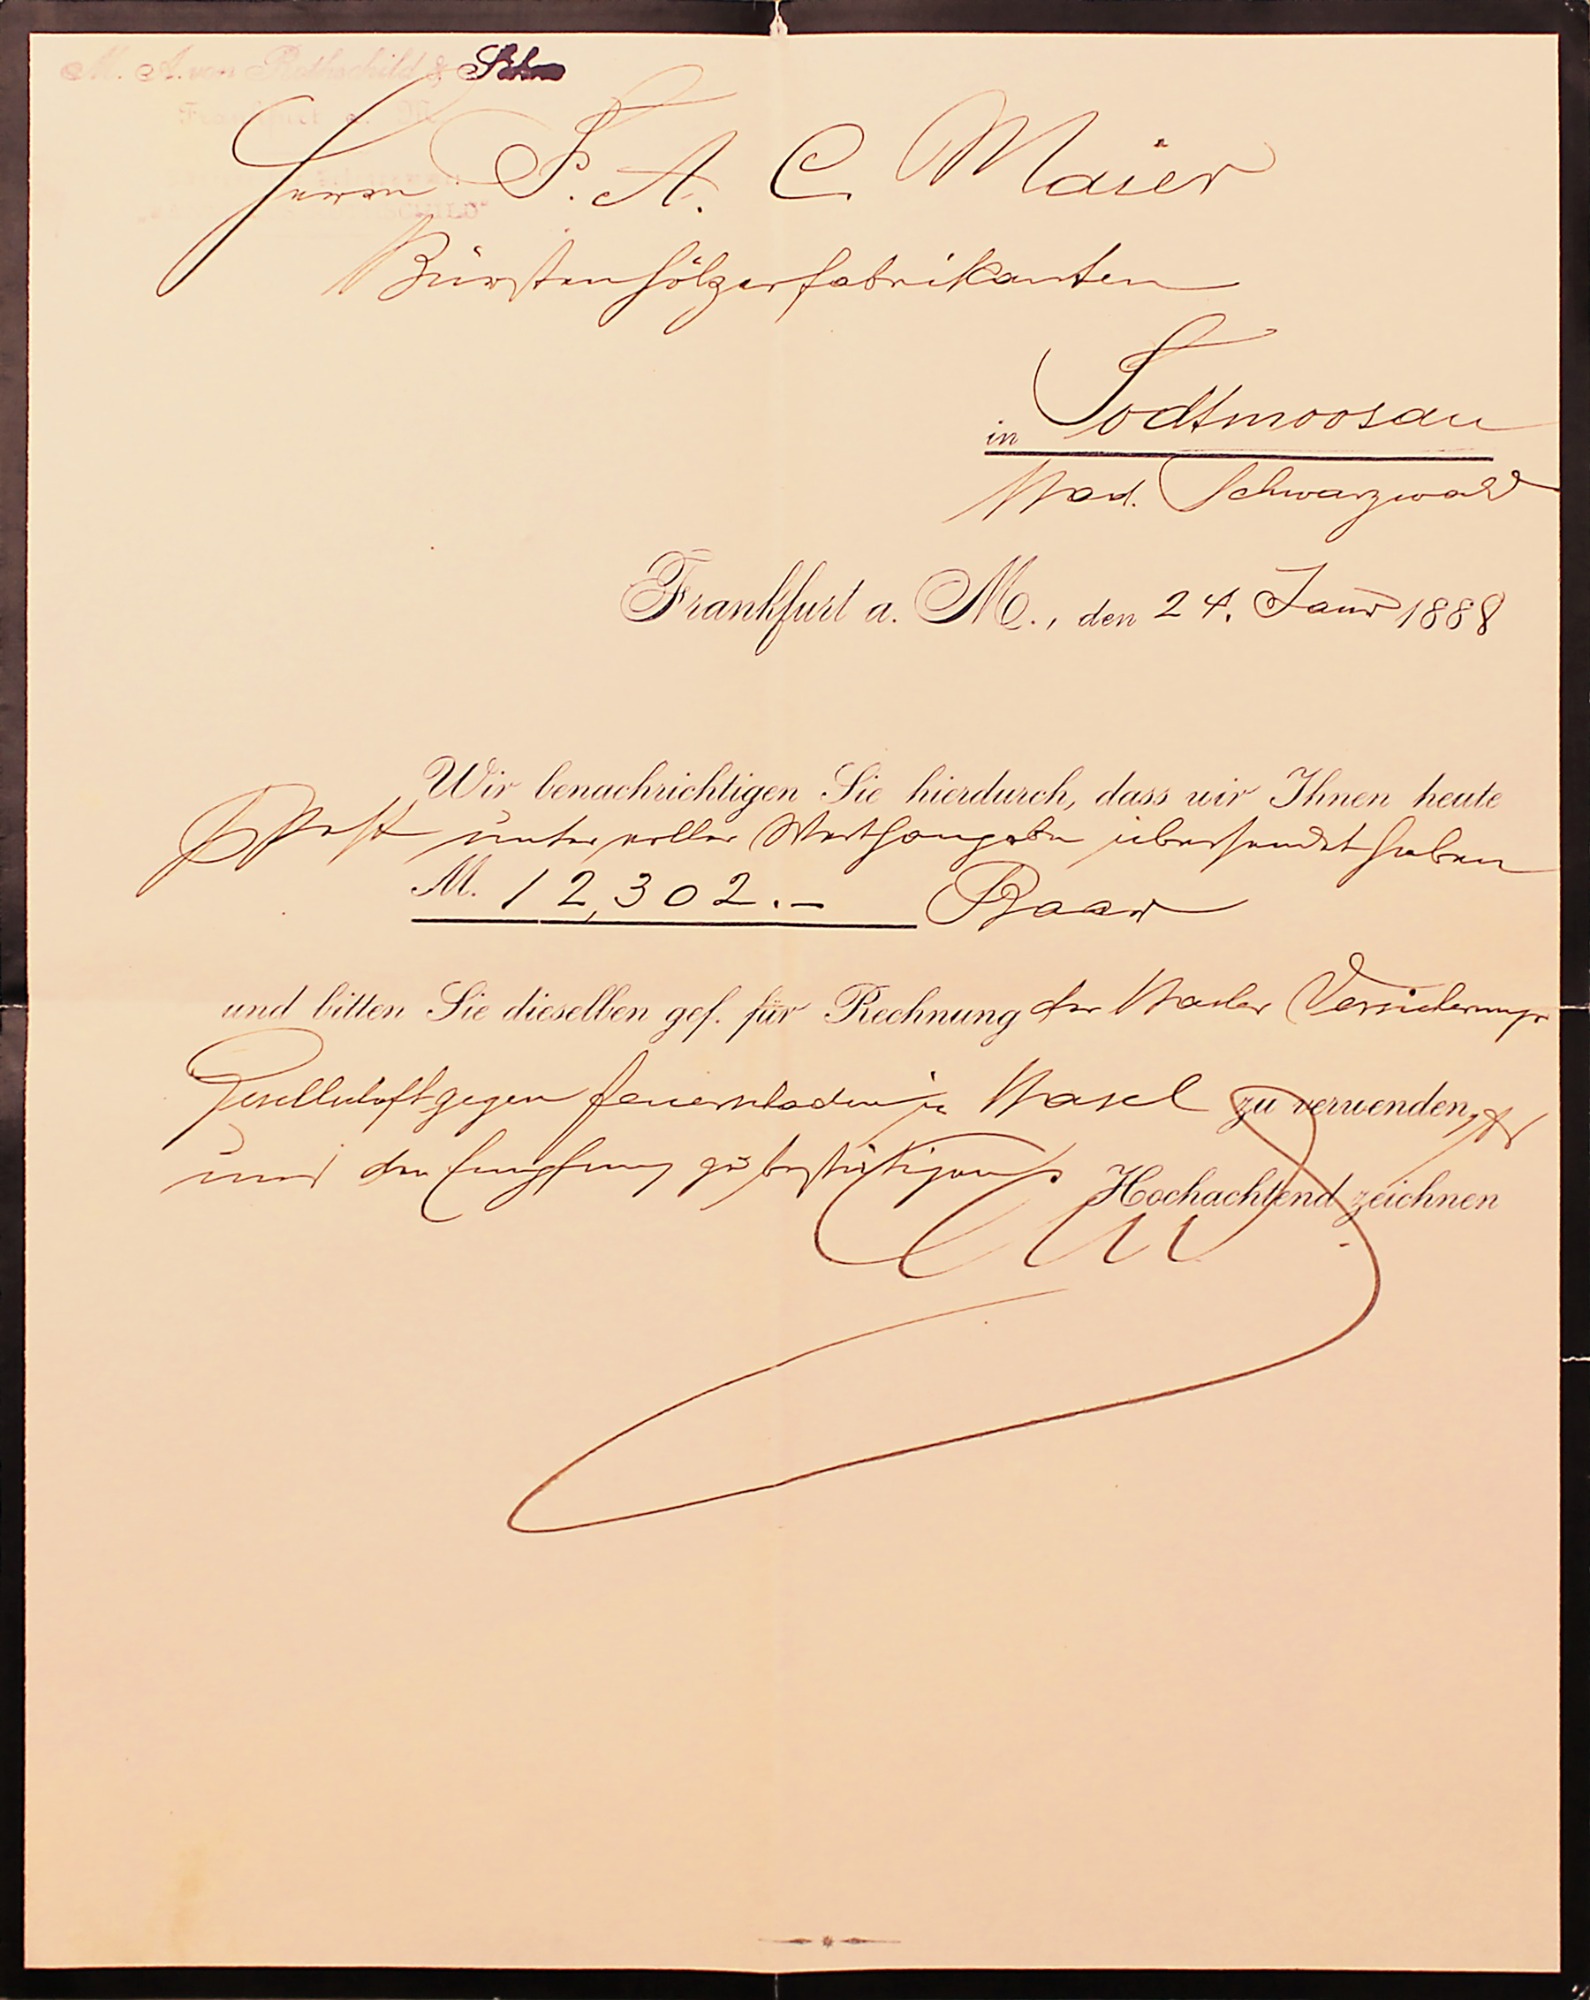 M. A. von Rothschild & Söhne
Frankfurt a. M.
Herrn F. A. C. Maier
Bürstenhölzerfabrikanten
in Todtmoosau
Bad. Schwarzwald
Frankfurt a. M., den 24. Janr 1888
Wir benachrichtigen Sie hierdurch, dass wir Ihnen heute
p Post unter voller Werthangabe übersendet haben
M. 12,302.- Baar
und bitten Sie dieselben gef. für Rechnung der Basler Versicherungs
Gesellschaft gegen Feuerschaden in Basel zu verwenden,
und den Empfang zu bestätigen
Hochachtend zeichnen